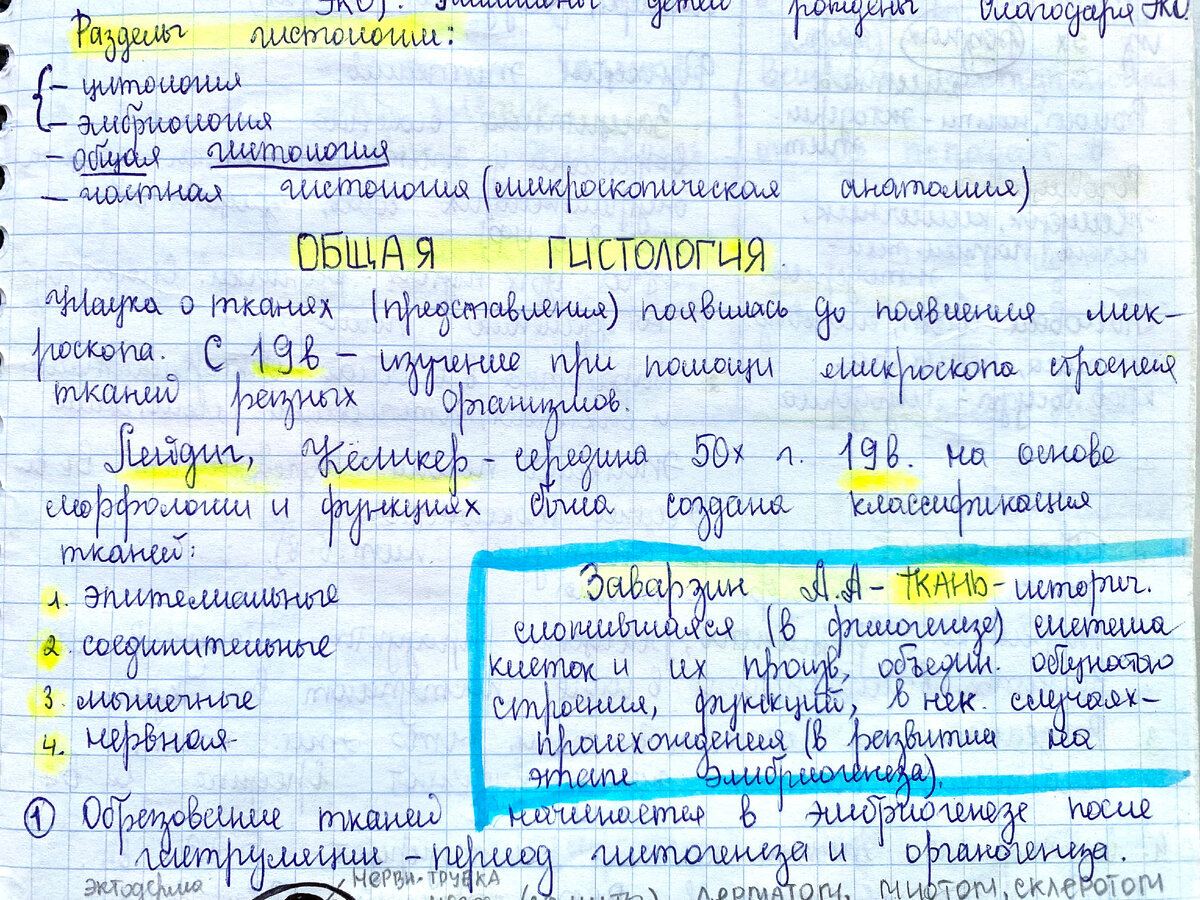 ЭКО). Миллионы детей рождены благодаря ЭКО.
Разделы гистологии:
– цитология
– эмбриология
– общая гистология
– частная гистология (микроскопическая анатомия)
ОБЩАЯ ГИСТОЛОГИЯ.
Наука о тканях (представления) появилась до появления мик-
роскопа. С 19в – изучение при помощи микроскопа строения
тканей разных организмов.
Лейдиг, Кёликер – середина 50х г. 19в. на основе
морфологии и функциях была создана классификация
тканей:
1. эпителиальные
2. соединительные
3. мышечные
4. нервная
Заварзин А.А – ТКАНЬ – историч.
сложившаяся (в филогенезе) система
клеток и их произв, объедин. общностью
строения, функций, в нек. случаях –
происхождения (в развитии на
этапе эмбриогенеза).
1 Образование тканей начинается в эмбриогенезе после
гаструляции – период гистогенеза и органогенеза.
эктодерма
нервн. трубка
дерматом, миотом, склеротом